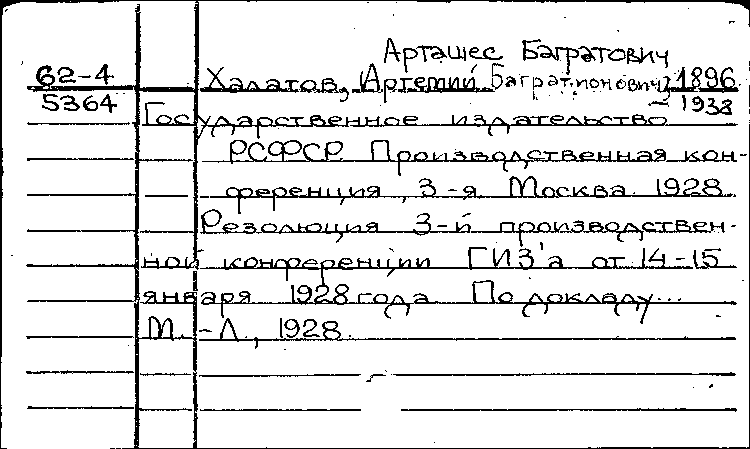 Арташес Багратович
62-4 Халатов, Артемий Багратионович, 1896
5364 – 1938
Государственное издательство
РСФСР. Производственная кон-
ференция, 3-я. Москва. 1928.
Резолюция 3-й производствен-
ной конференции ГИЗ'а от 14-15
января 1928 года. По докладу...
М.-Л., 1928.